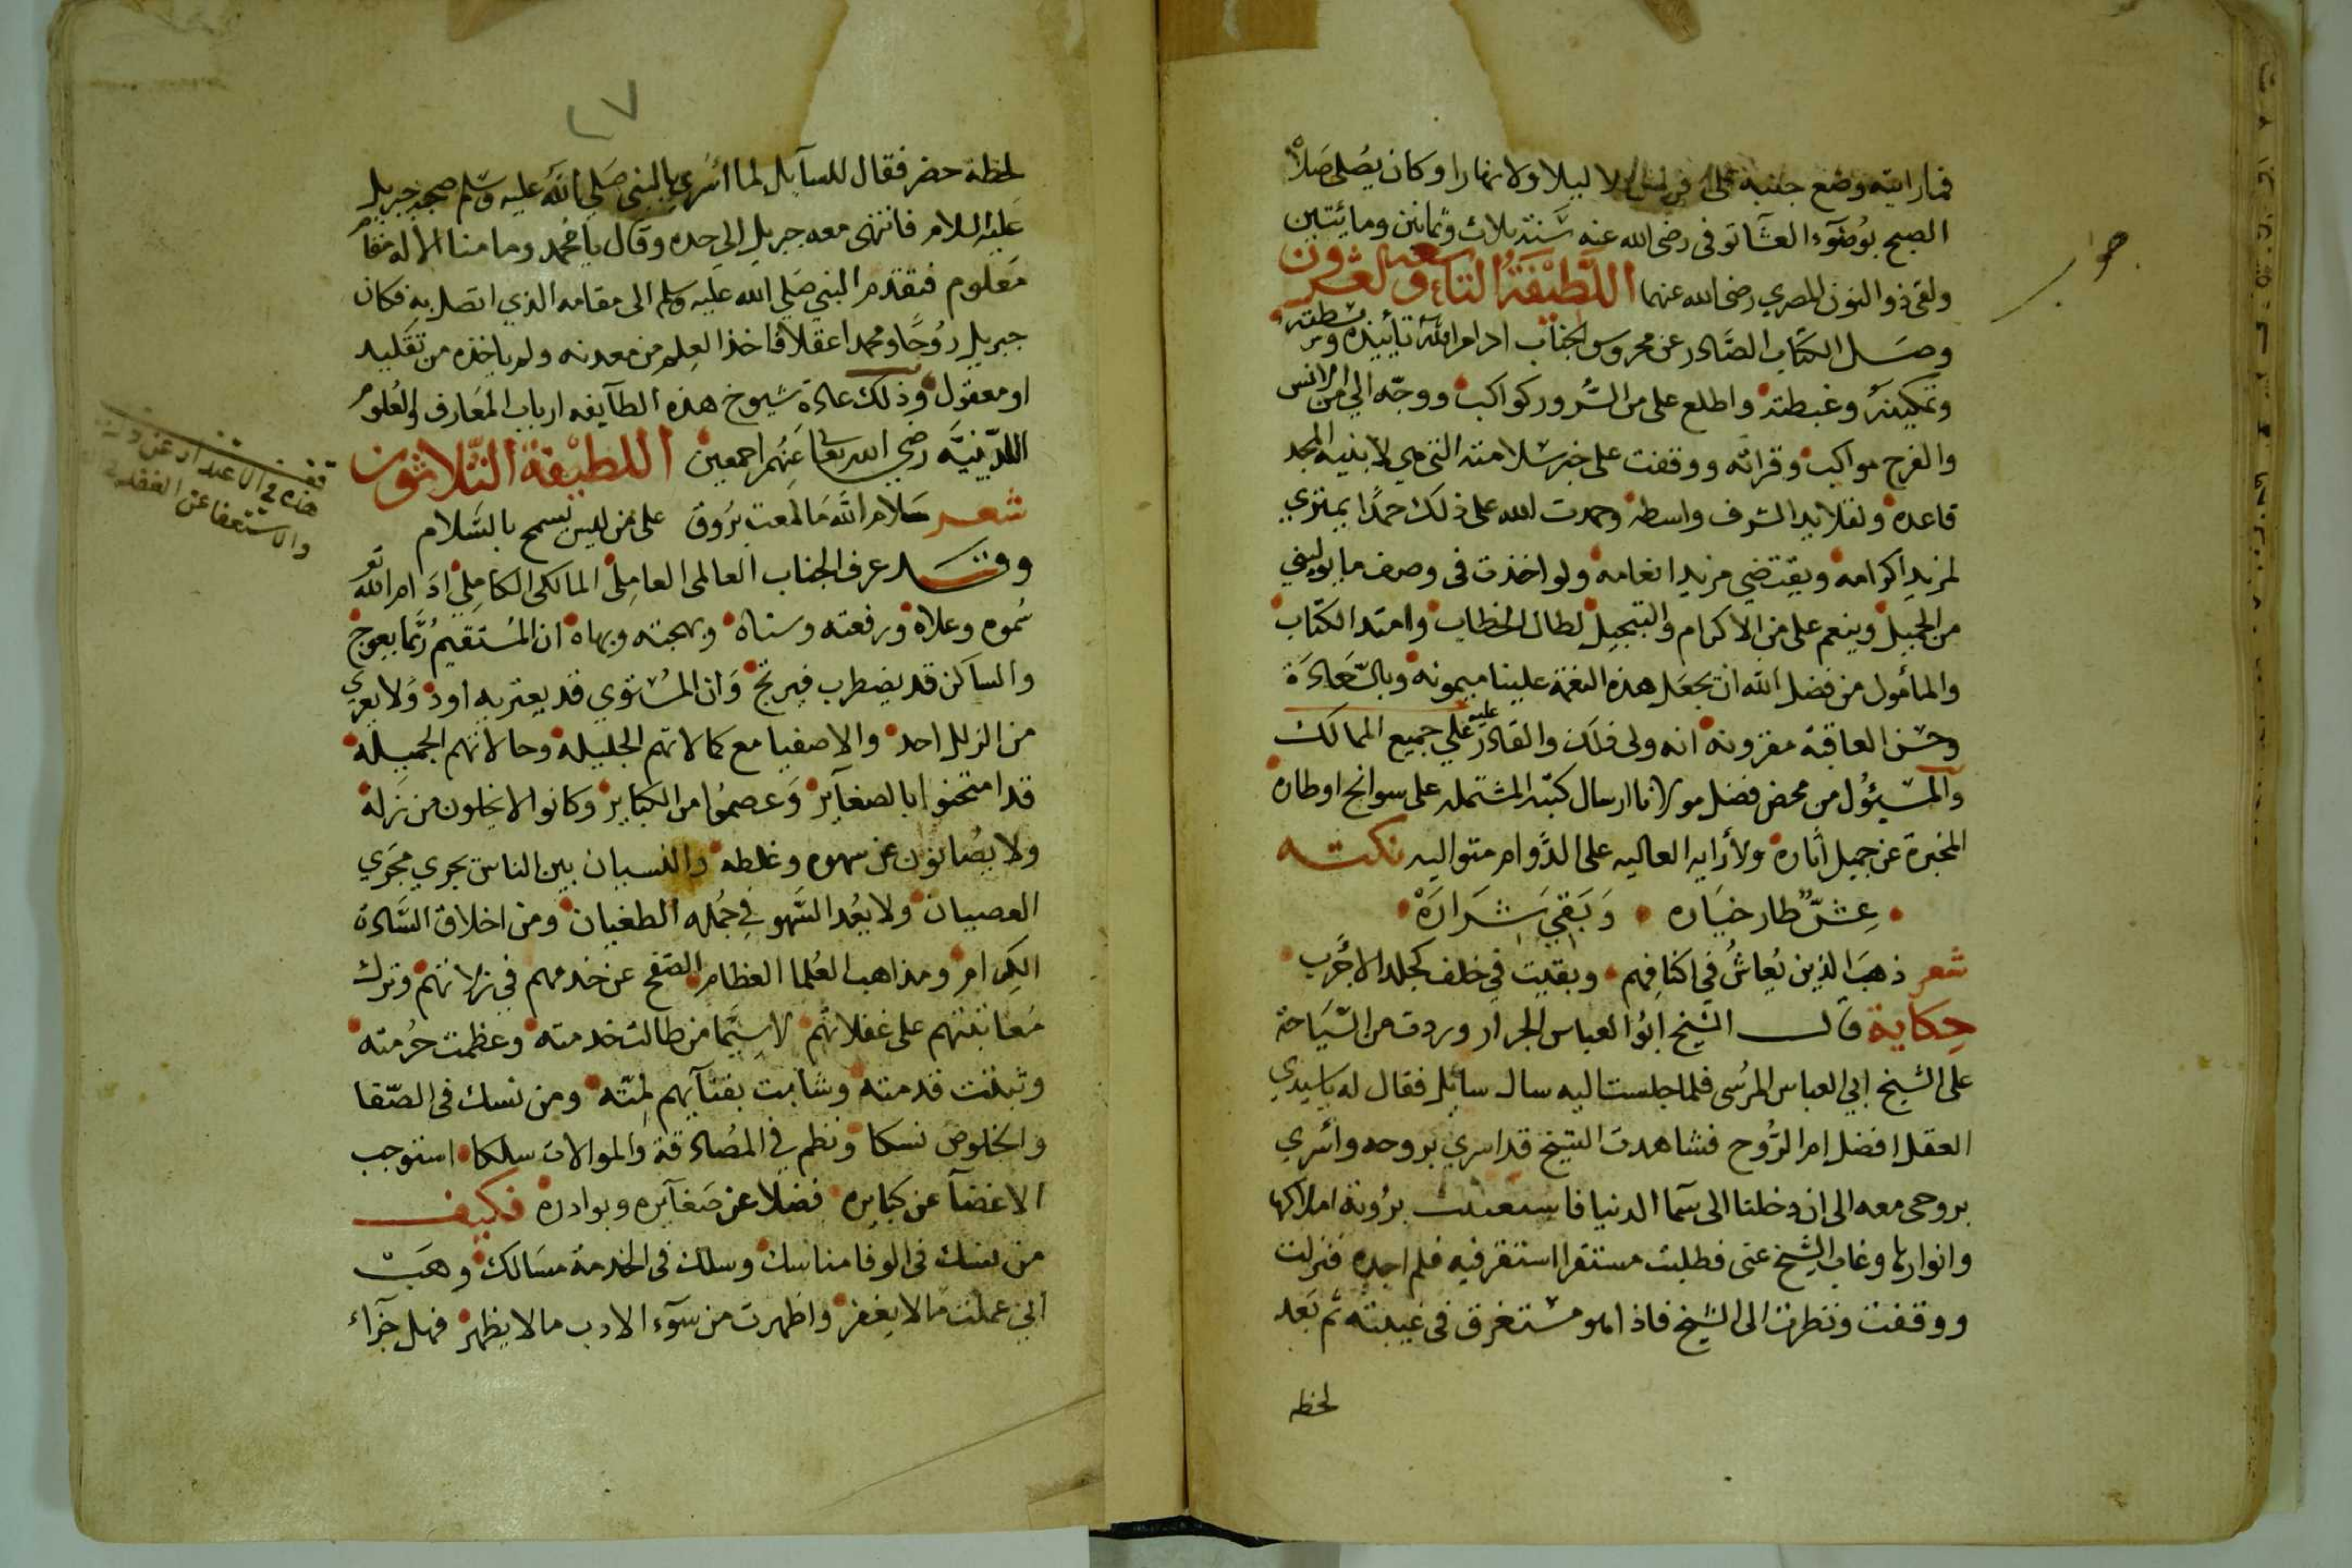 فما رايته وضع جنبه على فراش لا ليلا ولا نهارا وكان يصلى صلاة
الصبح بوضوء العشا توفى رضى الله عنه سنة ثلاث وثمانين ومائتين
ولقى ذو النون المصري رضى الله عنهما اللطيفة التاسعة والعشرون
وصل الكتاب الصادر عن محروس الجناب ادام الله تأييده وبسطته
وتمكينه وغبطته واطلع على من السرور كواكب ووجه الي من الانس
والفرح مواكب وقراته ووقفت على خبر سلامته التي هي لابنية المجد
قاعده ولقلايد الشرف واسطه وحمدت الله على ذلك حمدا يمتري
لمزيد اكرامه ويقتضي مزيد انعامه ولو اخذت فى وصف ما يوليني
من الجميل وينعم على من الاكرام والتبجيل لطال الخطاب وامتد الكتاب
والمأمول من فضل الله ان يجعل هذه النعمة علينا ميمونه وبالسعادة
وحسن العاقبة مقرونه انه ولى ذلك والقادر عليه على جميع الممالك
والمسئول من محض فضل مولانا ارسال كتبه المشتمله على سوانح اوطاره
المخبرة عن جميل اثاره ولأرايه العاليه على الدوام متواليه نكته
عش طار خياره وبقي شراره
شعر ذهب الذين يعاش في اكنافهم وبقيت في خلف كجلد الاجرب
حكاية قال الشيخ ابو العباس الجرار وردت من السياحة
على الشيخ ابي العباس المرسى فلما جلست اليه سال سائل فقال له يا سيدي
العقل افضل ام الروح فشاهدت الشيخ قد اسري بروحه واسري
بروحى معه الى ان دخلنا الى سما الدنيا برؤية املاكها
وانوارها وغاب الشيخ عنى فطلبت مستقرا استقر فيه فلم اجده فنزلت
ووقفت ونظرت الى الشيخ فاذا هو مستغرق فى غيبته ثم بعد
لحظه
٢٧
لحظة حضر فقال للسآيل لما اسري بالنبي صلي الله عليه وسلم صحبه جبريل
عليه السلام فانتهى معه جبريل الي حده وقال يا محمد وما منا الا له مقام
معلوم فتقدم النبي صلي الله عليه وسلم الى مقامه الذي اتصل به فكان
جبريل روحا ومحمدا عقلا فاخذ العلم من معدنه ولم ياخذه من تقليد
او معقول وذلك عادة شيوخ هذه الطآيفه ارباب المعارف والعلوم
اللدنية رضي الله تعالى عنهم اجمعين اللطيفة الثلاثون
شعر سلام الله ما لمعت بروق على من ليس يسمح بالسلام
وقد عرف الجناب العالمى العاملى المالكى الكاملي ادام الله تع
سموه وعلاه ورفعته وسناه وبهجته وبهاه ان المستقيم ربما يعوج
والساكن قد يضطرب فيرتج وان المستوي قد يعتريه اود ولا يعري
من الزلل احد والاصفيا مع كمالاتهم الجليله وحالاتهم الجميله
قد امتحنوا بالصغآير وعصموا من الكباير وكانوا لا يخلون من زله
ولا يصانون عن سهوه وغلطه والنسيان بين الناس يجري مجري
العصيان ولا يعد السهو في جمله الطغيان ومن اخلاق السادة
الكرام ومذاهب العلما العظام الصفح عن خدمهم في زلاتهم وترك
معاتبتهم على غفلاتهم لا سيما من طالت خدمته وعظمت حرمته
وثبتت قدمته وشابت بفنآيهم لمته ومن نسك فى الصفا
والخلوص نسكا ونظم في المصادقة والموالات سلكا استوجب
الاغضآ عن كبايره فضلا عن صغآيره وبوادره فكيف
من نسك فى الوفا مناسك وسلك فى الخدمة مسالك وهب
اني عملت ما لا يغفر واظهرت من سوء الادب ما لا يظهر فهل جزآء
هذه في الاعتذار عن
والاستعفا عن